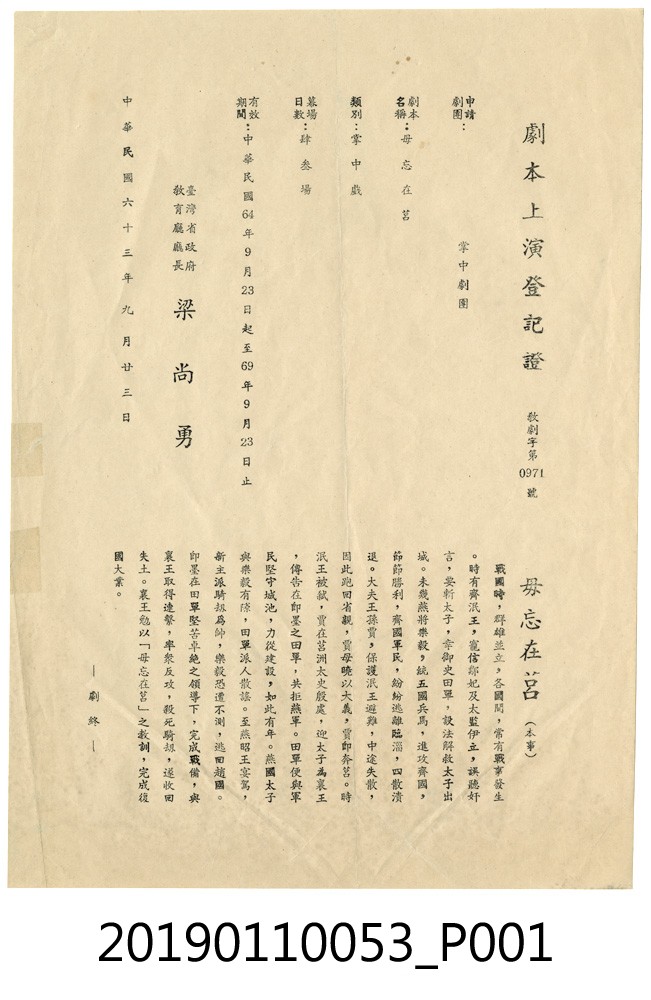 劇本上演登記證 教劇字第0971號
申請劇團：掌中劇團
劇本名稱：毋忘在莒
類別：掌中戲
幕場日數：肆叁場
有效期間：中華民國64年9月23日起至69年9月23日止
臺灣省政府教育廳廳長 梁尚勇
中華民國六十三年九月廿三日
毋忘在莒（本事）
戰國時，群雄並立，各國間，常有戰事發生
。時有齊泯王，寵信鄒妃及太監伊立，誤聽奸
言，要斬太子，幸御史田單，設法解救太子出
城。未幾燕將樂毅，統五國兵馬，進攻齊國，
節節勝利，齊國軍民，紛紛逃離臨淄，四散潰
退。大夫王孫賈，保護泯王避難，中途失散，
因此跑回省親，賈母曉以大義，賈即奔莒。時
泯王被弒，賈在莒洲太史殷處，迎太子為襄王
，傳告在即墨之田單，共拒燕軍。田單便與軍
民堅守城池，力從建設，如此有年。燕國太子
與樂毅有隙，田單派人散謠。至燕昭王宴駕，
新主派騎刼爲帥，樂毅恐遭不測，逃回趙國。
即墨在田單堅苦卓絶之領導下，完成戰備，與
襄王取得連繫，率衆反攻，殺死騎刼，遂收回
失土。襄王勉以「毋忘在莒」之教訓，完成復
國大業。
—劇終—
20190110053_P001